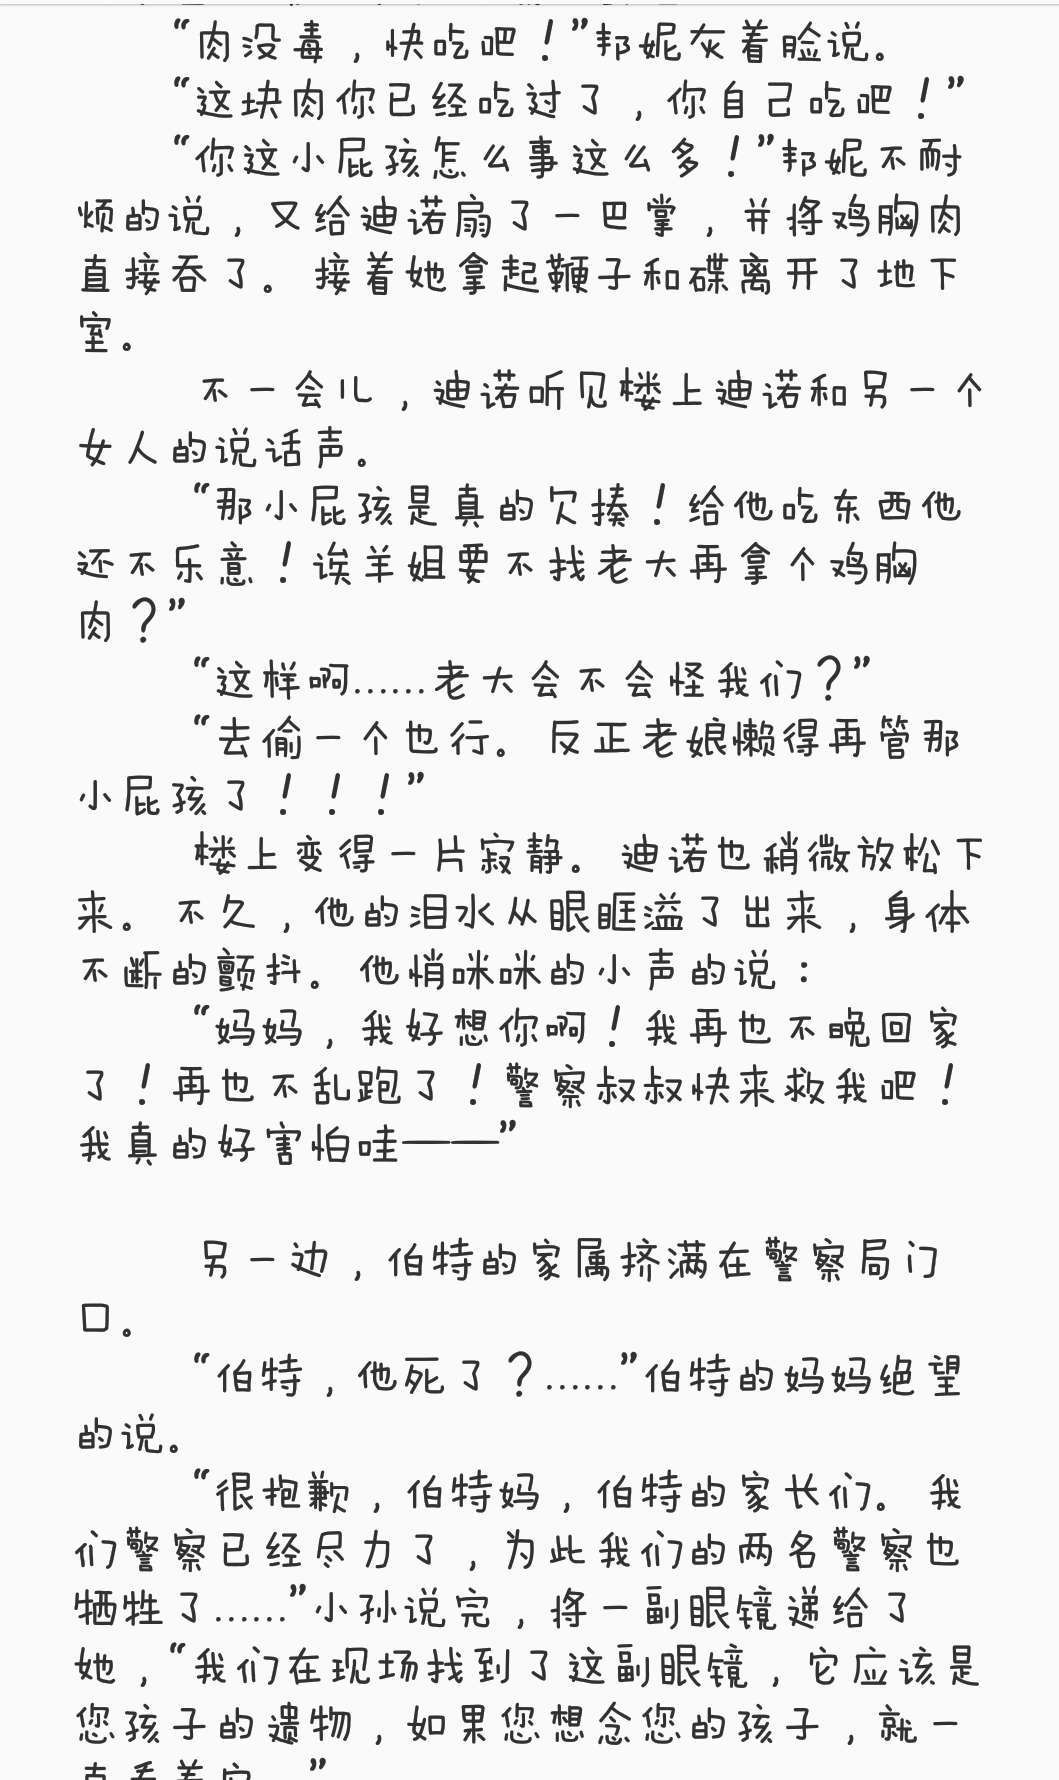 “肉没毒，快吃吧！”邦妮灰着脸说。
“这块肉你已经吃过了，你自己吃吧！”
“你这小屁孩怎么事这么多！”邦妮不耐
烦的说，又给迪诺扇了一巴掌，并将鸡胸肉
直接吞了。接着她拿起鞭子和碟离开了地下
室。
不一会儿，迪诺听见楼上迪诺和另一个
女人的说话声。
“那小屁孩是真的欠揍！给他吃东西他
还不乐意！诶羊姐要不找老大再拿个鸡胸
肉？”
“这样啊……老大会不会怪我们？”
“去偷一个也行。反正老娘懒得再管那
小屁孩了！！！”
楼上变得一片寂静。迪诺也稍微放松下
来。不久，他的泪水从眼眶溢了出来，身体
不断的颤抖。他悄咪咪的小声的说：
“妈妈，我好想你啊！我再也不晚回家
了！再也不乱跑了！警察叔叔快来救我吧！
我真的好害怕哇——”
另一边，伯特的家属挤满在警察局门
口。
“伯特，他死了？……”伯特的妈妈绝望
的说。
“很抱歉，伯特妈，伯特的家长们。我
们警察已经尽力了，为此我们的两名警察也
牺牲了……”小孙说完，将一副眼镜递给了
她，“我们在现场找到了这副眼镜，它应该是
您孩子的遗物，如果您想念您的孩子，就一
”